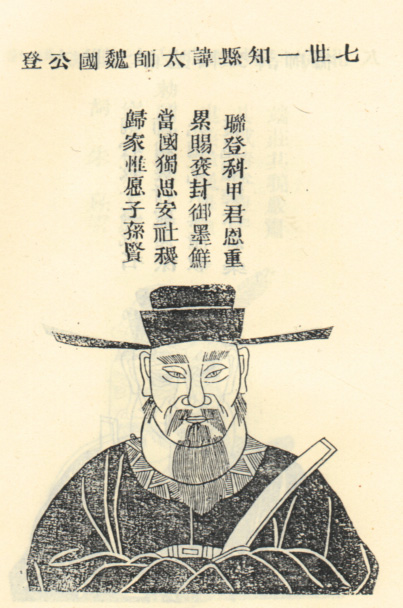 七世一知縣諱太師魏國公登
聯登科甲君恩重
累賜褒封御墨鮮
當國獨思安社稷
歸家惟愿子孫賢